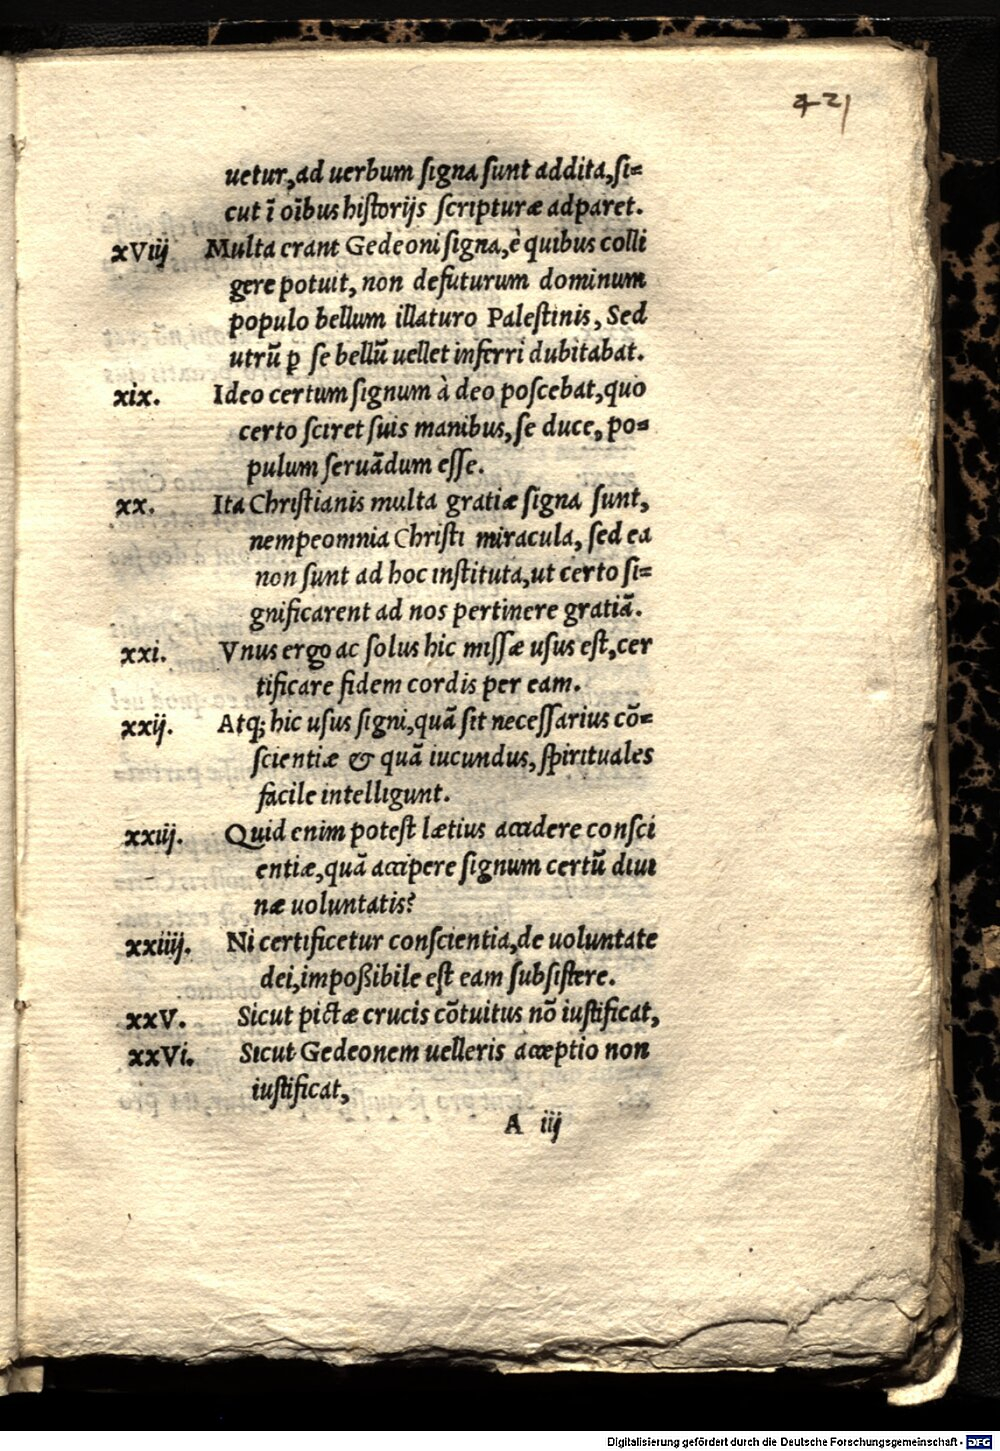 421
uetur,ad uerbum signa sunt addita,si=
cut ī oībus historijs scripturæ adparet.
xViij Multa erant Gedeoni signa,è quibus colli
gere potuit, non defuturum dominum
populo bellum illaturo Palestinis, Sed
utrū ꝑ se bellū uellet inferri dubitabat.
xix. Ideo certum signum à deo poscebat,quo
certo sciret suis manibus,se duce, po=
pulum seruādum esse.
xx. Ita Christianis multa gratiæ signa sunt,
nempeomnia Christi miracula, sed ea
non sunt ad hoc instituta,ut certo si=
gnificarent ad nos pertinere gratiā.
xxi. Vnus ergo ac solus hic missæ usus est,cer
tificare fidem cordis per eam.
xxij. Atq; hic usus signi,quā sit necessarius cō=
scientiæ & quā iucundus, spirituales
facile intelligunt.
xxiij. Quid enim potest lætius accidere consci
entiæ,quā accipere signum certū diui
næ uoluntatis?
xxiiij. Ni certificetur conscientia,de uoluntate
dei,impoßibile est eam subsistere.
xxV. Sicut pictæ crucis cōtuitus nō iustificat,
xxVi. Sicut Gedeonem uelleris acceptio non
iustificat,
A iij
Digitalisierung gefördert durch die Deutsche Forschungsgemeinschaft - DFG